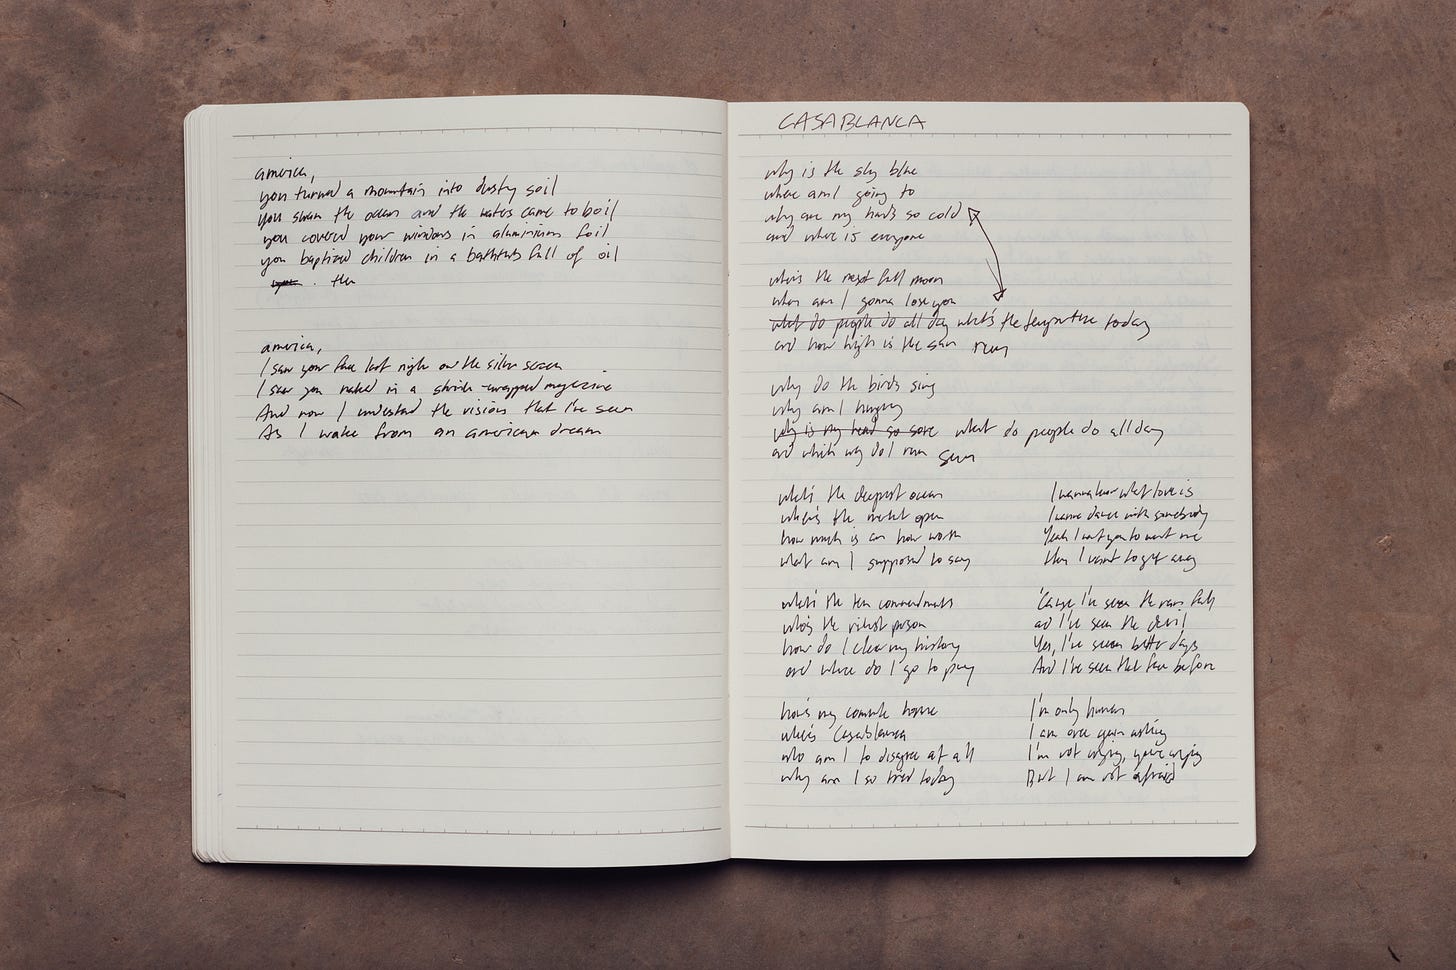 america,
you turned a mountain into dusty soil
you swam the ocean and the waters came to boil
you covered your windows in aluminium foil
you baptized children in a bathtub full of oil
the
america,
I saw your face last night on the silver screen
I saw you naked in a shrink-wrapped magazine
And now I understand the visions that I've seen
As I wake from an american dream
CASABLANCA
why is the sky blue
where am I going to
why are my hands so cold
and where is everyone
when's the next full moon
when am I gonna lose you
what do people do all day what's the temperature today
and how high is the sun run
why do the birds sing
why am I hungry
why is my head so sore what do people do all day
and which way do I run sun
what's the deepest ocean
when's the market open
how much is an hour worth
what am I supposed to say
what's the ten commandments
who's the richest person
how do I clear my history
and where do I go to pray
how's my commute home
where's Casablanca
who am I to disagree at all
why am I so tired today
I wanna know what love is
I wanna dance with somebody
Yeah I want you to want me
then I want to get away
'Cause I've seen the rain fall
and I've seen the devil
Yes, I've seen better days
And I've seen that face before
I'm only human
I am once again asking
I'm not crying, you're crying
But I am not afraid